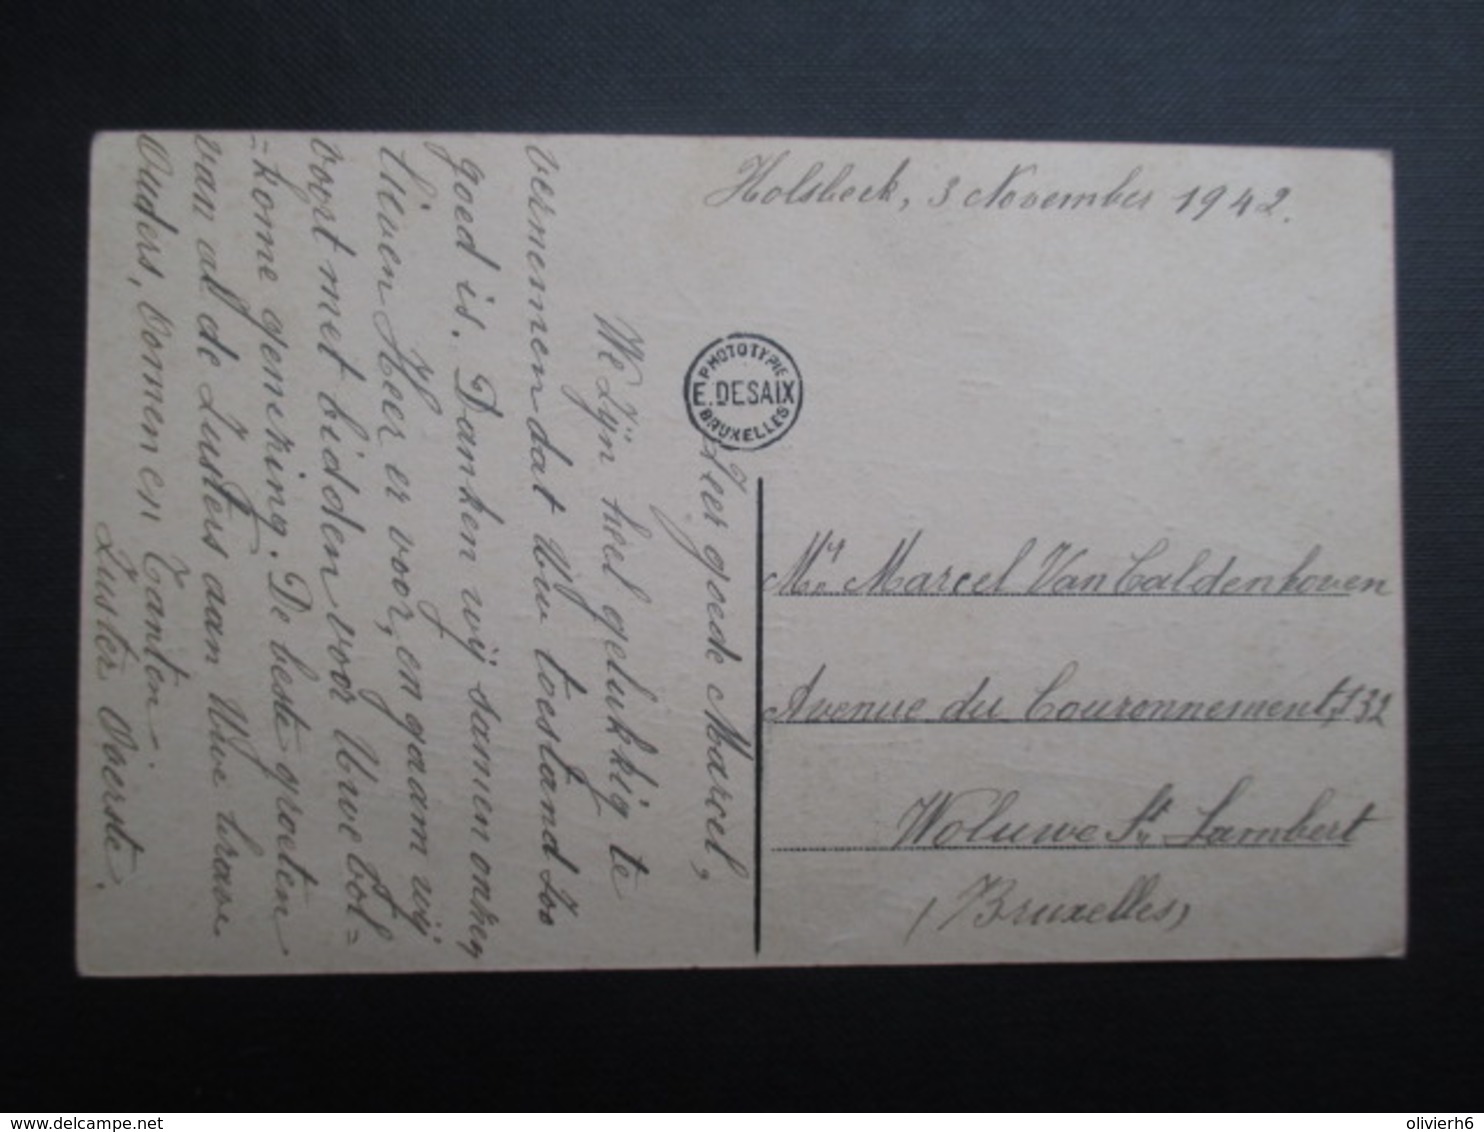 Holsbeek, 3 November 1942.
PHOTOTYPIE
E. DESAIX
BRUXELLES
Zeer goede Marcel,
We zijn heel gelukkig te
vernemen dat Uw toestand zoo
goed is. Danken wij samen onzen
lieven Heer er voor, en gaan wij
voort met bidden voor Uwe vol=
=kome genezing. De beste groeten
van al de Zusters aan Uwe brave
Ouders, Nonnen en Tanten.
Zuster Overste.
Mr Marcel Van Caldenhoven
Avenue du Couronnement, 132
Woluwe St Lambert
(Bruxelles)
delcampe.net
olivierh6